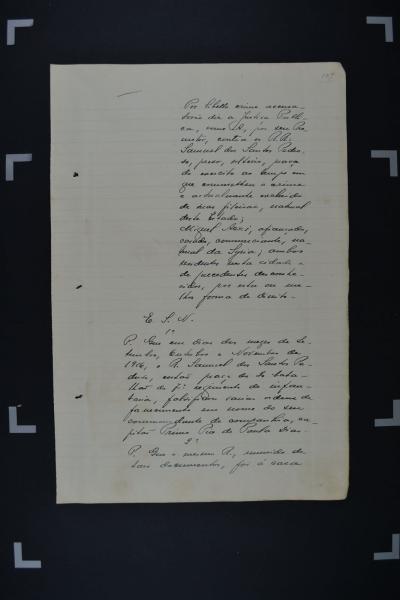 Por libello crime accusa-
torio diz a Justiça Publi-
ca, como A., por seu Pro-
motor, contra os R.R.
Samuel dos Santos Pedro-
so, preso, solteiro, praça
do exercito ao tempo em
que commetteu o crime
e actualmente excluido
de suas fileiras, natural
deste Estado;
Miguel afiançado,
casado, commerciante, na-
tural da Syria; ambos
residentes nesta cidade e
de precedentes desconhe-
cidos, por esta ou me-
lhor forma de direito.
E. S. N.
1º
P. Que em dias dos mezes de Se-
tembro, Outubro e Novembro de
1916, o R. Samuel dos Santos Pe-
droso, então praça do bata-
lhão do 7º regimento de infan-
taria, falsificou varias ordens de
fornecimento em nome do seu
commandante de companhia, ca-
pitão Primo Pio de Paula Dias.
2º
P. Que o mesmo R., munido de
taes documentos, foi á casa